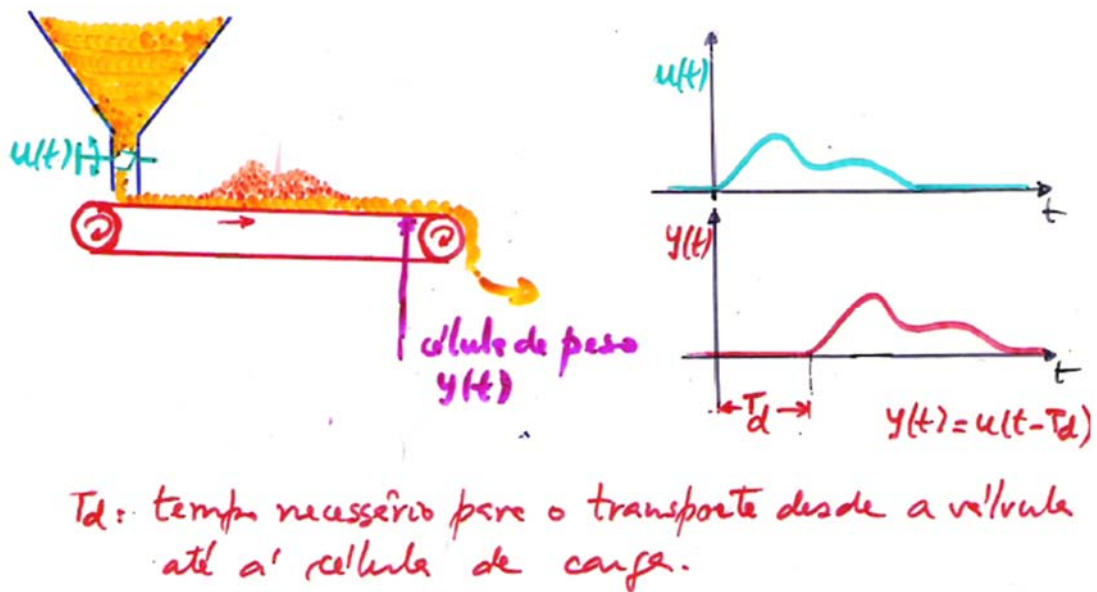 u(t)
u(t)
t
y(t)
t
célula de peso
y(t)
Td
y(t) = u(t-Td)
Td: tempo necessário para o transporte desde a válvula
até à célula de carga.